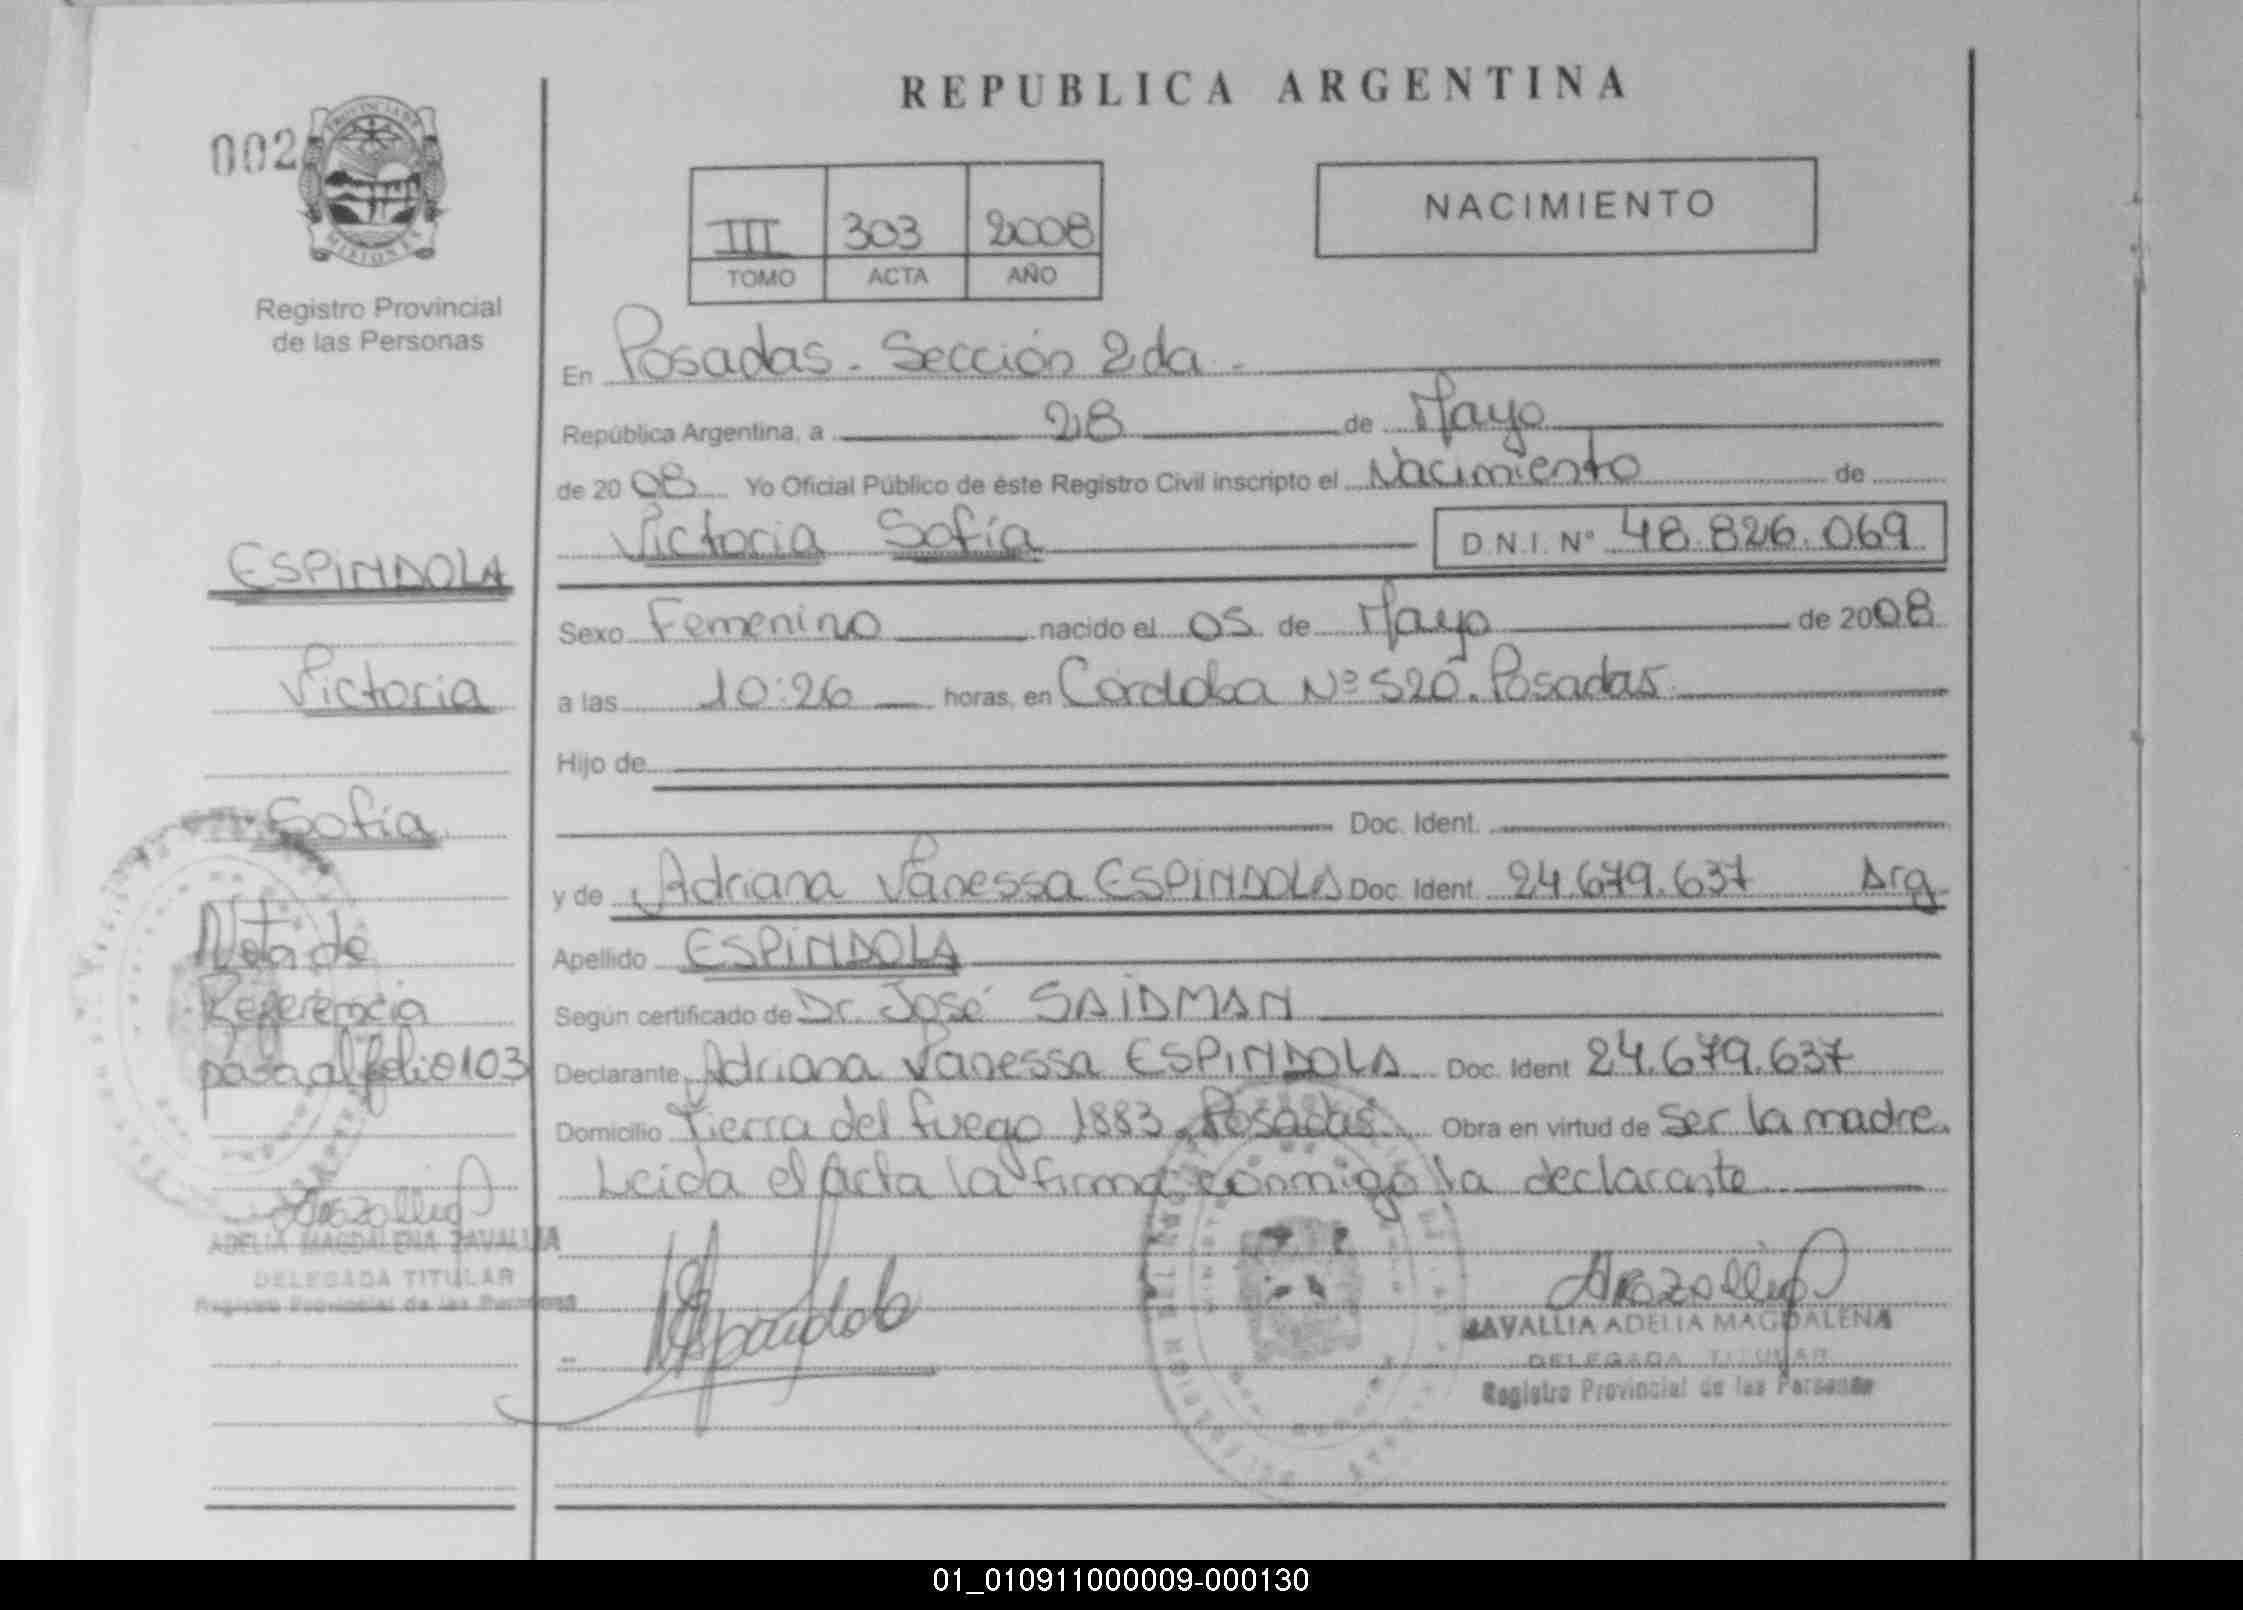 REPUBLICA ARGENTINA
002
PROVINCIA DE
MISIONES
Registro Provincial
de las Personas
III 303 2008
TOMO ACTA AÑO
NACIMIENTO
En Posadas. Sección 2da.
República Argentina, a 28 de Mayo
de 2008 Yo Oficial Público de éste Registro Civil inscripto el Nacimiento de
Victoria Sofía D.N.I. Nº 48.826.069
Sexo Femenino nacido el 05 de Mayo de 2008
a las 10:26 horas, en Córdoba Nº 520. Posadas
Hijo de
Doc. Ident.
y de Adriana Vanessa ESPINDOLA Doc. Ident. 24.679.637 Arg
Apellido ESPINDOLA
Según certificado de Dr. José SAIDMAN
Declarante Adriana Vanessa ESPINDOLA Doc. Ident 24.679.637
Domicilio Tierra del fuego 1883. Posadas Obra en virtud de ser la madre.
Leida el acta la firma conmigo la declarante
ESPINDOLA
Victoria
Sofía
Nota de
Referencia
pasa al folio 103
ADELIA MAGDALENA ZAVALLIA
DELEGADA TITULAR
Registro Provincial de las Personas
ZAVALLIA ADELIA MAGDALENA
DELEGADA TITULAR
Registro Provincial de las Personas
01_010911000009-000130